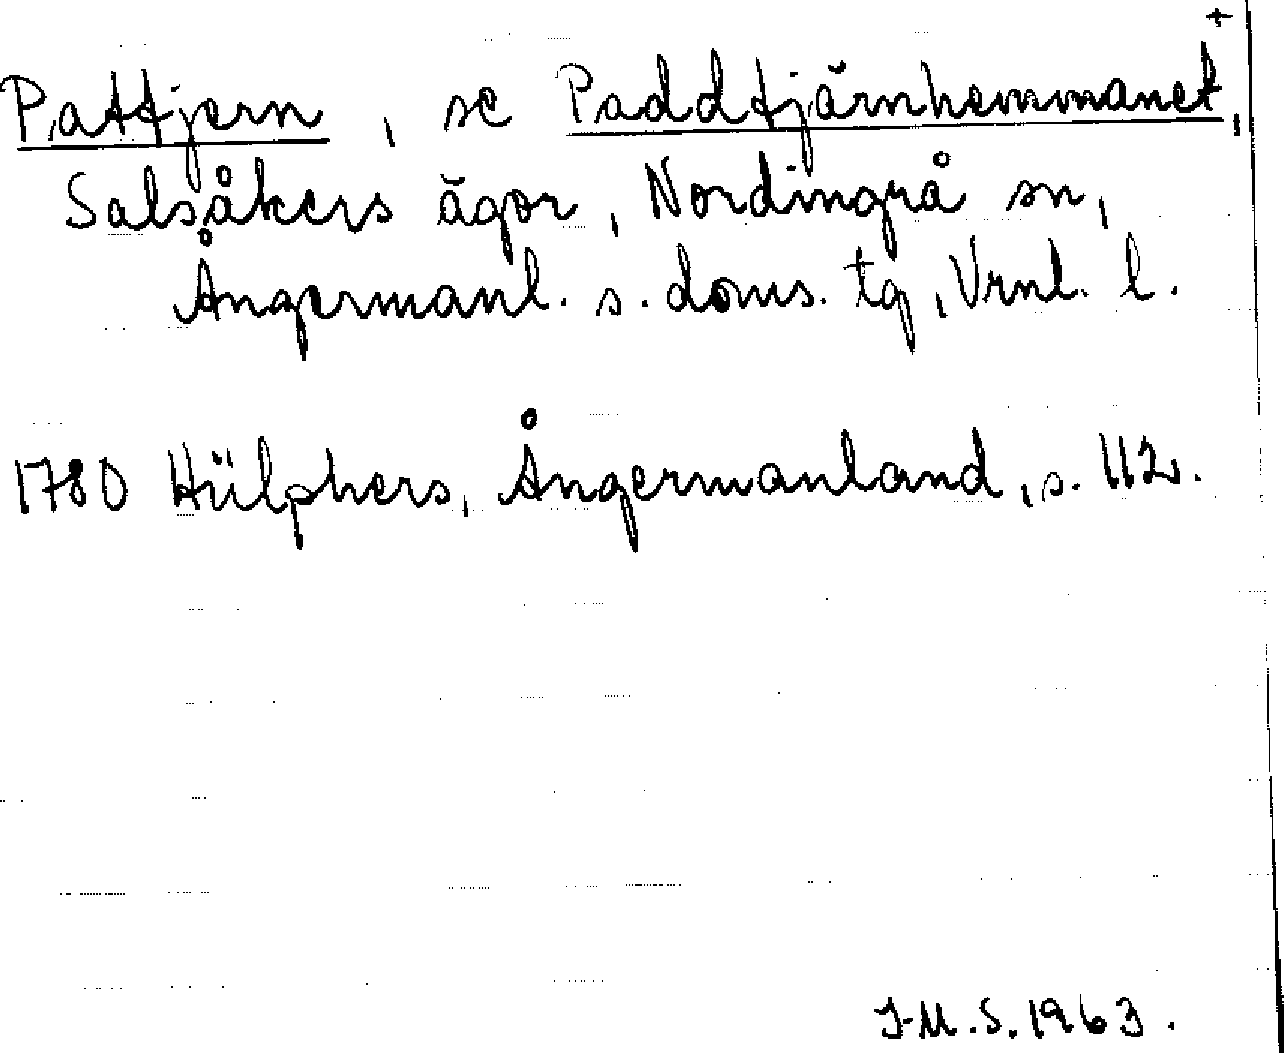 +
Pattjern, se Paddtjärnhemmanet,
Salsåkers ägor, Nordingrå sn,
Ångermanl. s. doms. tg, Vrnl. l.
1780 Hülphers, Ångermanland, s. 112.
J-M.S. 1963.